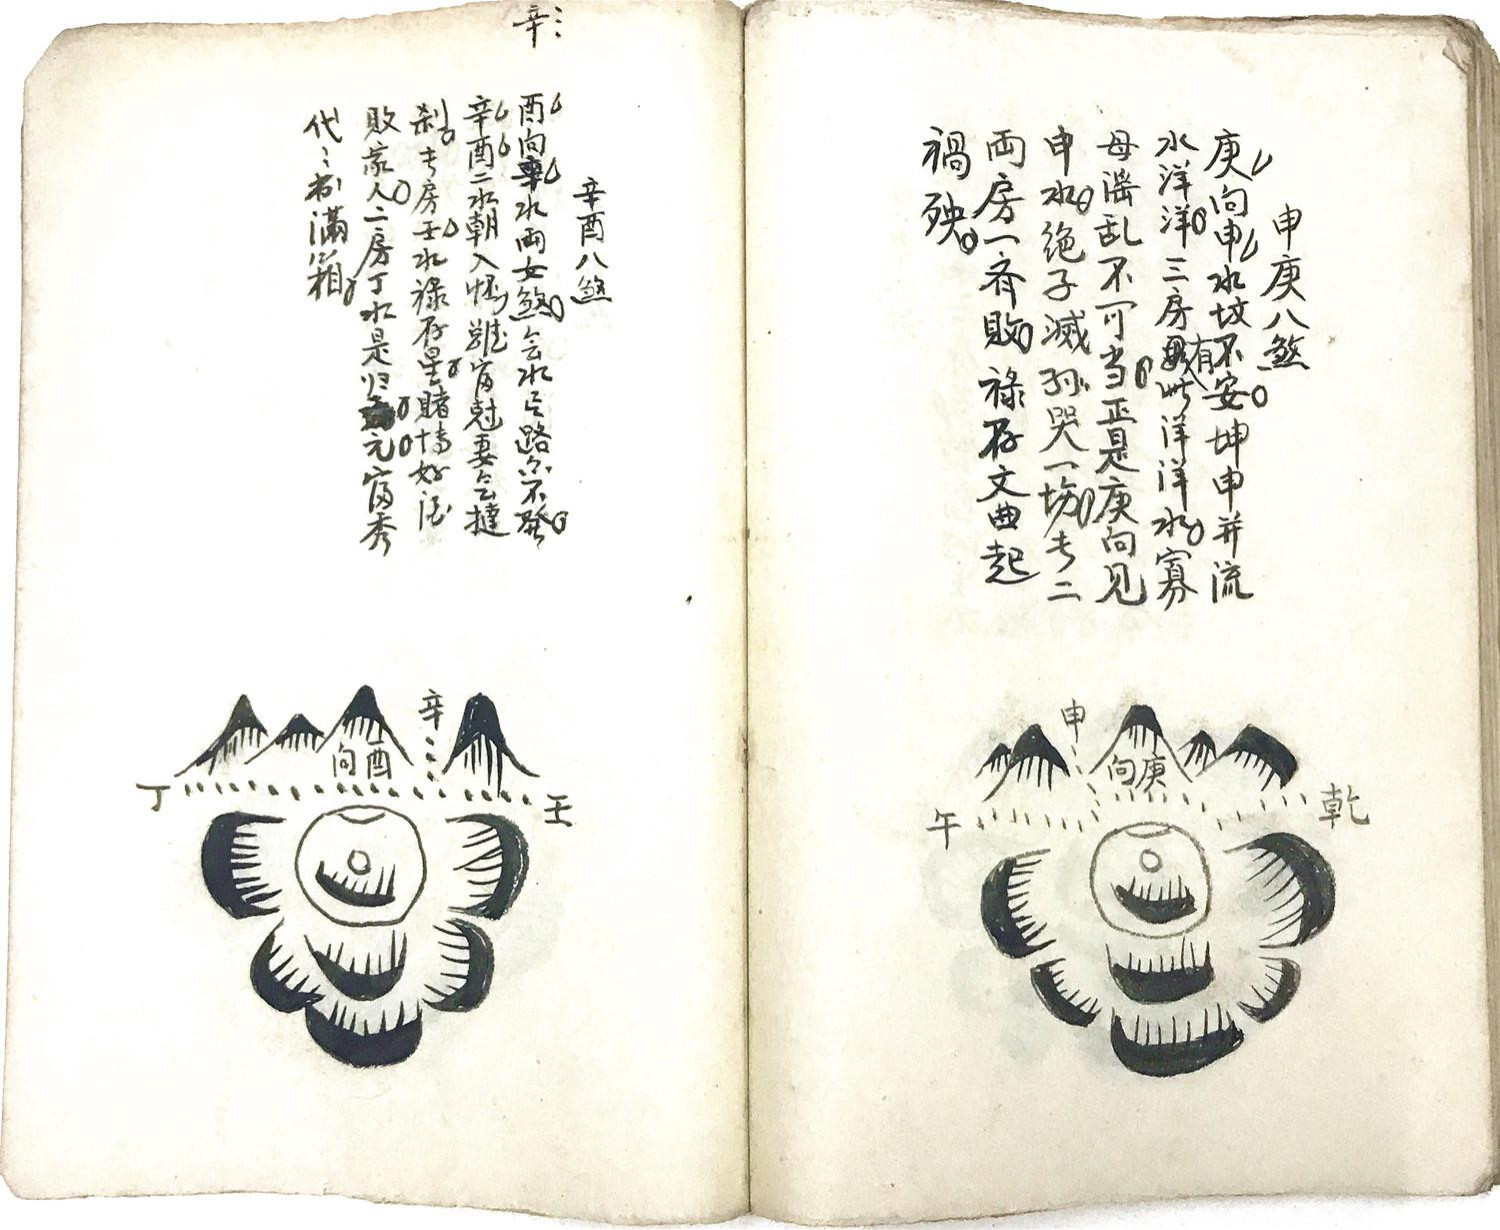 申庚八煞
庚向申水坟不安坤申并流
水洋洋三房有此洋洋水寡
母滛乱不可当正是庚向见
申水绝子滅孙哭一场长二
両房一齐敗禄存文曲起
禍殃
申
向庚
午
乾
辛
辛酉八煞
酉向辛水両女煞会水路不發
辛酉二水朝入怀虽富尅妻
刹长房壬水禄存星賭博好酒
敗家人二房丁水是归元富秀
代満箱
辛
向酉
丁
壬